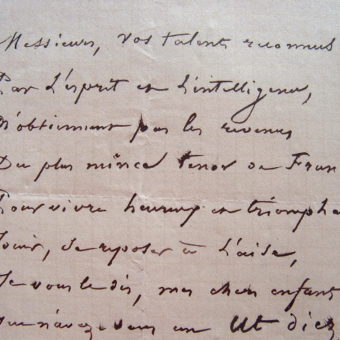 Messieurs, vos talents reconnus
Par l'esprit et l'intelligence,
N'obtiennent pas les revenus
Du plus mince tenor de Fran
Pour vivre heureux et triompha
Jouir, se reposer à l'aise,
Je vous le dis, mes chers enfant
Que n'avez-vous un Ut diez